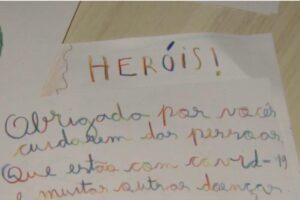 HERÓIS!
Obrigado por vocês
cuidarem das pessoas
que estão com covid-19
e muitas outras doenças